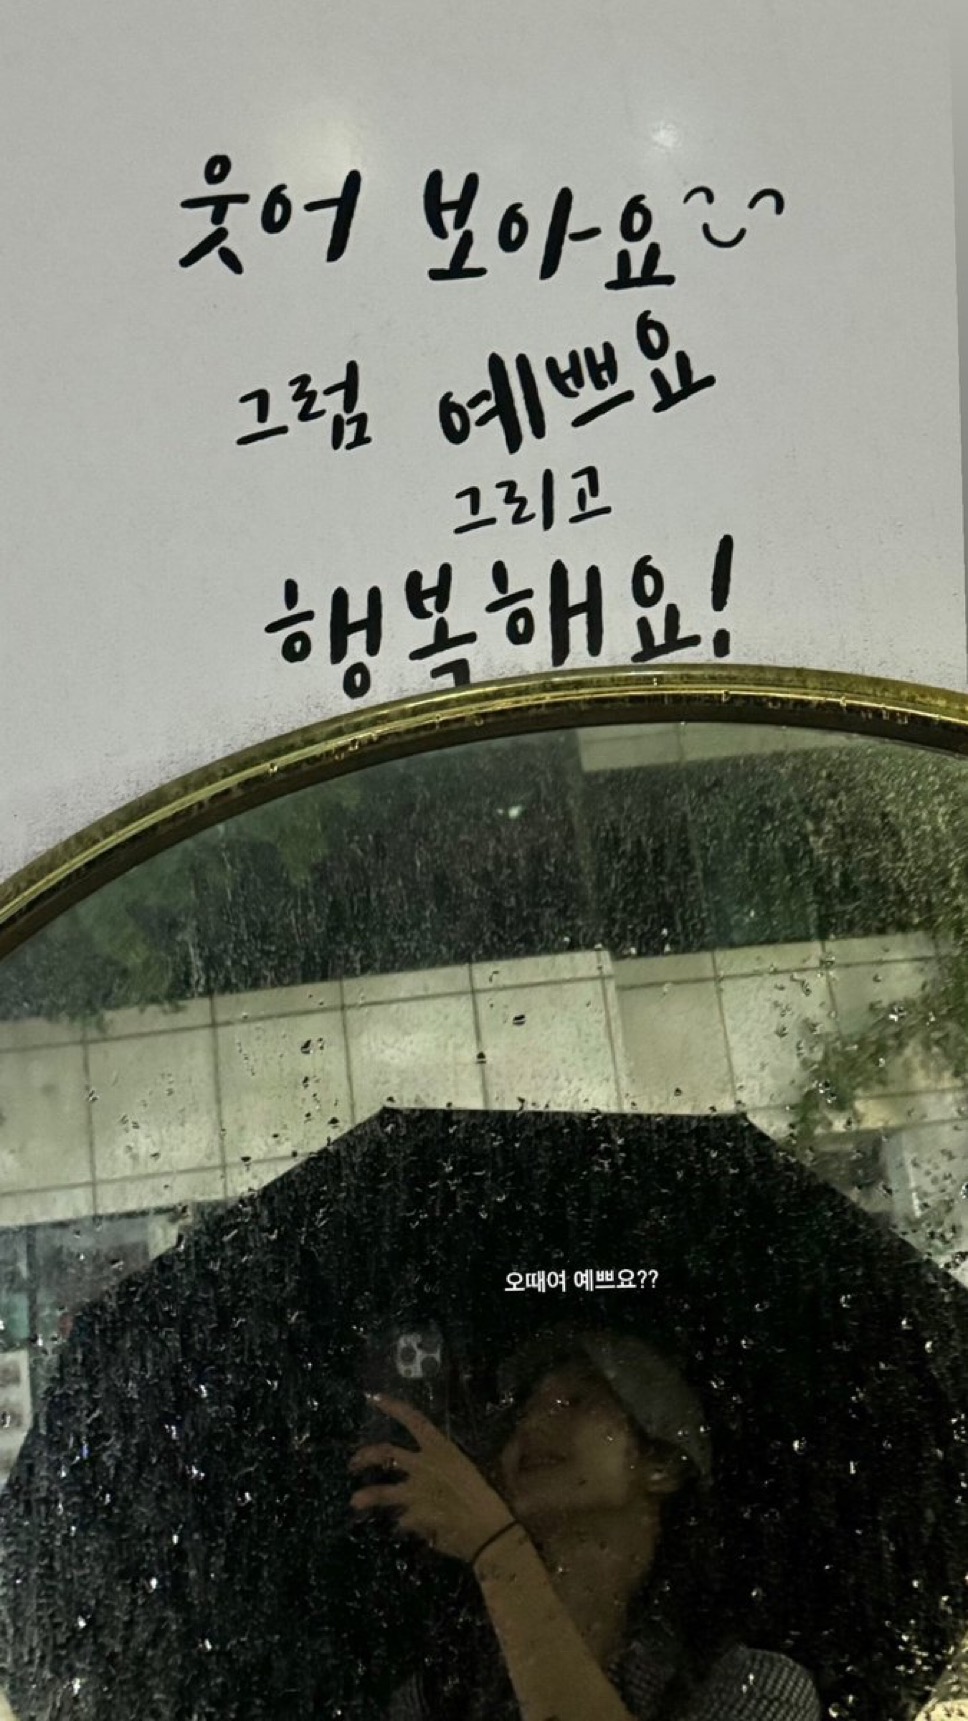 웃어 보아요
그럼 예쁘요
그리고
행복해요!
오때여 예쁘요??